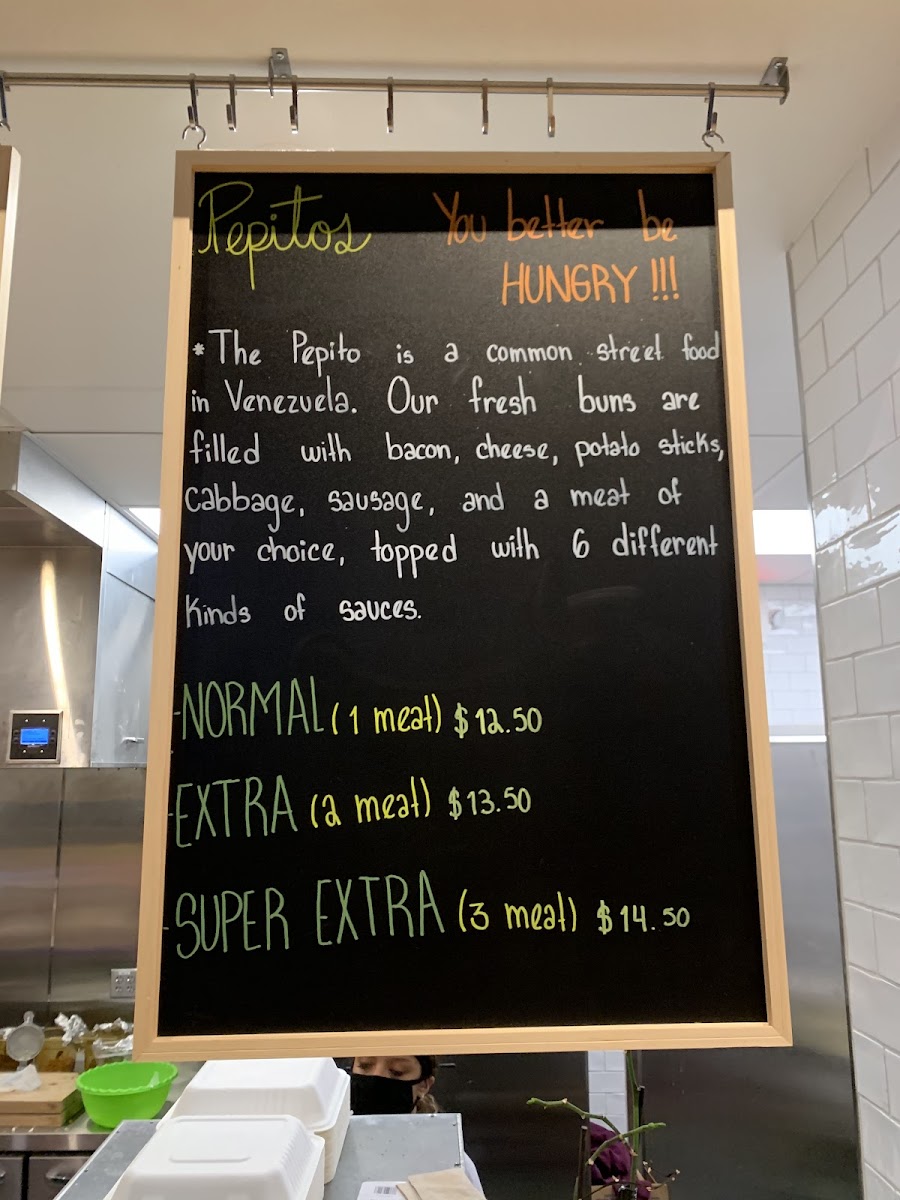 Pepitos
You better be
HUNGRY !!!
*The Pepito is a common street food
in Venezuela. Our fresh buns are
filled with bacon, cheese, potato sticks,
cabbage, sausage, and a meat of
your choice, topped with 6 different
kinds of sauces.
-NORMAL (1 meat) $12.50
-EXTRA (2 meat) $13.50
-SUPER EXTRA (3 meat) $14.50